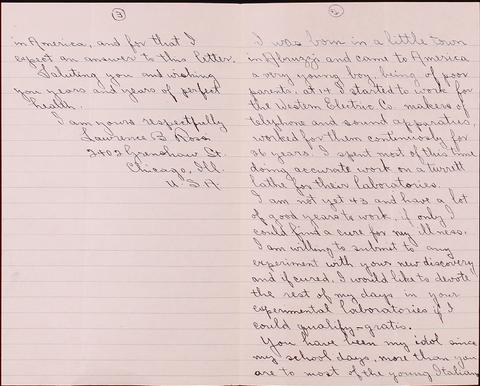 ②
I was born in a little town
in Abruzzi and came to America
a very young boy, being of poor
parents, at 14 I started to work for
the Western Electric Co. makers of
telephone and sound apparatus,
worked for them continuously for
26 years. I spent most of this time
doing accurate work on a turrett
lathe for their laboratories.
I am not yet 43 and have a lot
of good years to work, if only I
could find a cure for my illness.
I am willing to submit to any
experiment with your new discovery
and if cured, I would like to devote
the rest of my days in your
experimental laboratories if I
could qualify-gratis.
You have been my idol since
my school days, more than you
are to most of the young Italians
③
in America, and for that I
expect an answer to this letter.
Saluting you and wishing
you years and years of perfect
health.
I am yours respectfully
Lawrence B. Ross
2402 Grenshaw St.
Chicago, Ill.
U.S.A.